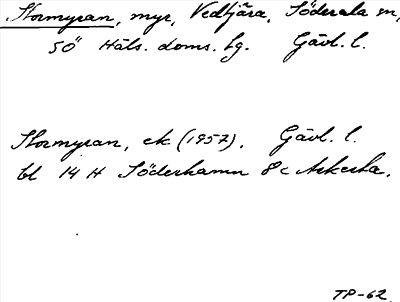 Stormyran, myr, Vedtjära, Söderala sn,
SÖ Häls. doms. hg. Gävl. l.
Stormyran, ek (1957). Gävl. l.
bl 14 H Söderhamn 8 c Askesta.
TP-62